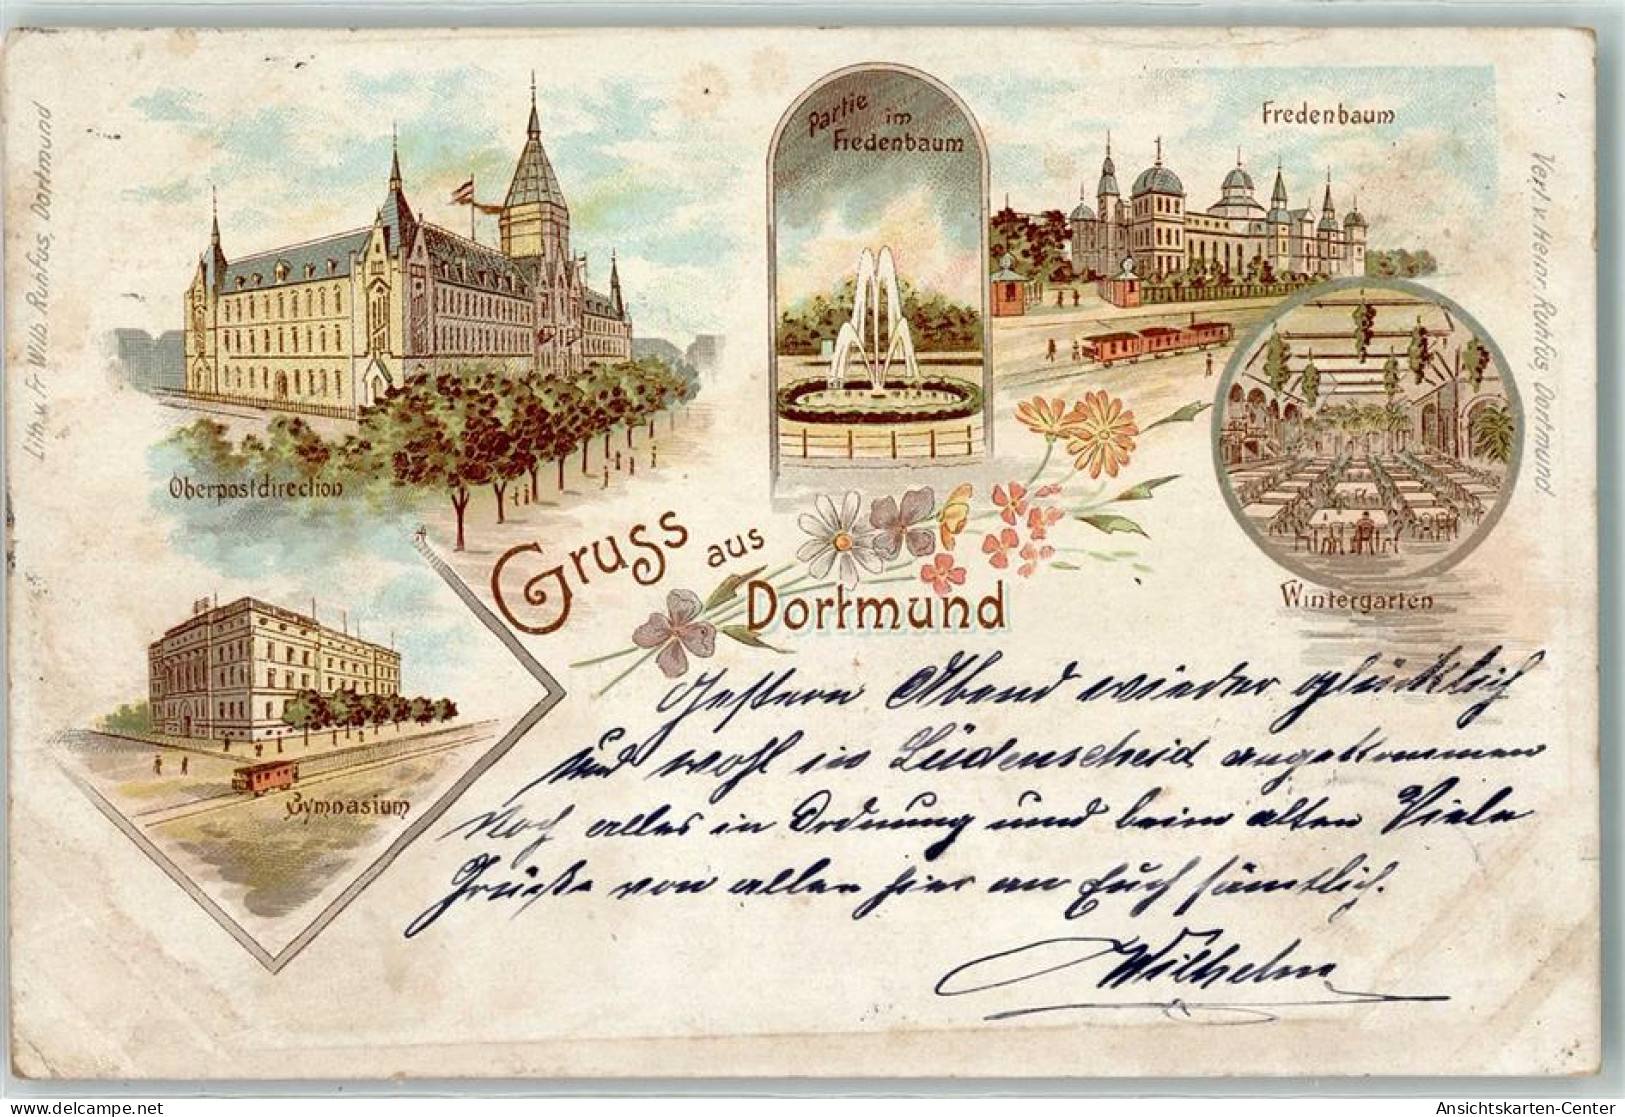 Lith. u. Fr. Wilb. Ruhfus, Dortmund
Partie im
Fredenbaum
Fredenbaum
Verl. v. Heinr. Ruhfus, Dortmund.
Oberpostdirection
Gruss aus
Dortmund
Wintergarten
Gymnasium
Gestern Abend wieder glücklich
und wohl in Lüdenscheid angekommen
Noch alles in Ordnung und beim alten Viele
Grüße von allen hier an Euch sämtlich.
Wilhelm
delcampe.net
Ansichtskarten-Center